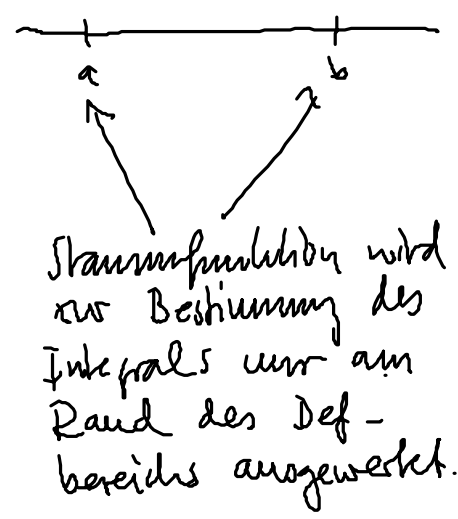 a b
Stammfunktion wird
zur Bestimmung des
Integrals nur am
Rand des Def-
bereichs ausgewertet.